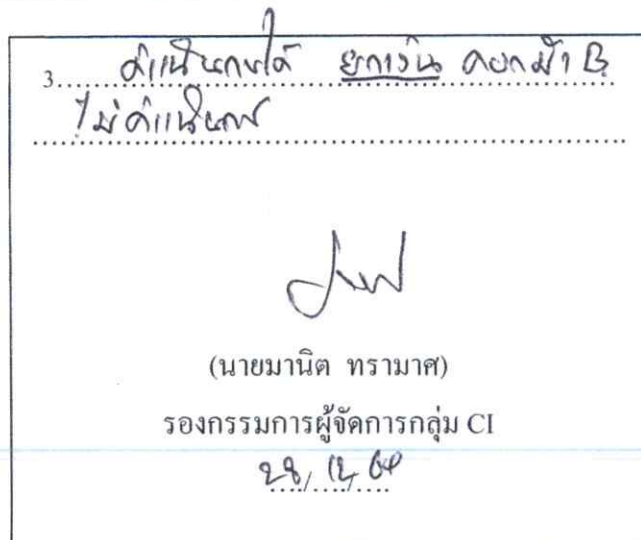 3. ดำเนินการได้ ยกเว้น ดอกม้า B
ไม่ดำเนินการ
(นายมานิต ทรามาศ)
รองกรรมการผู้จัดการกลุ่ม CI
28/12/64